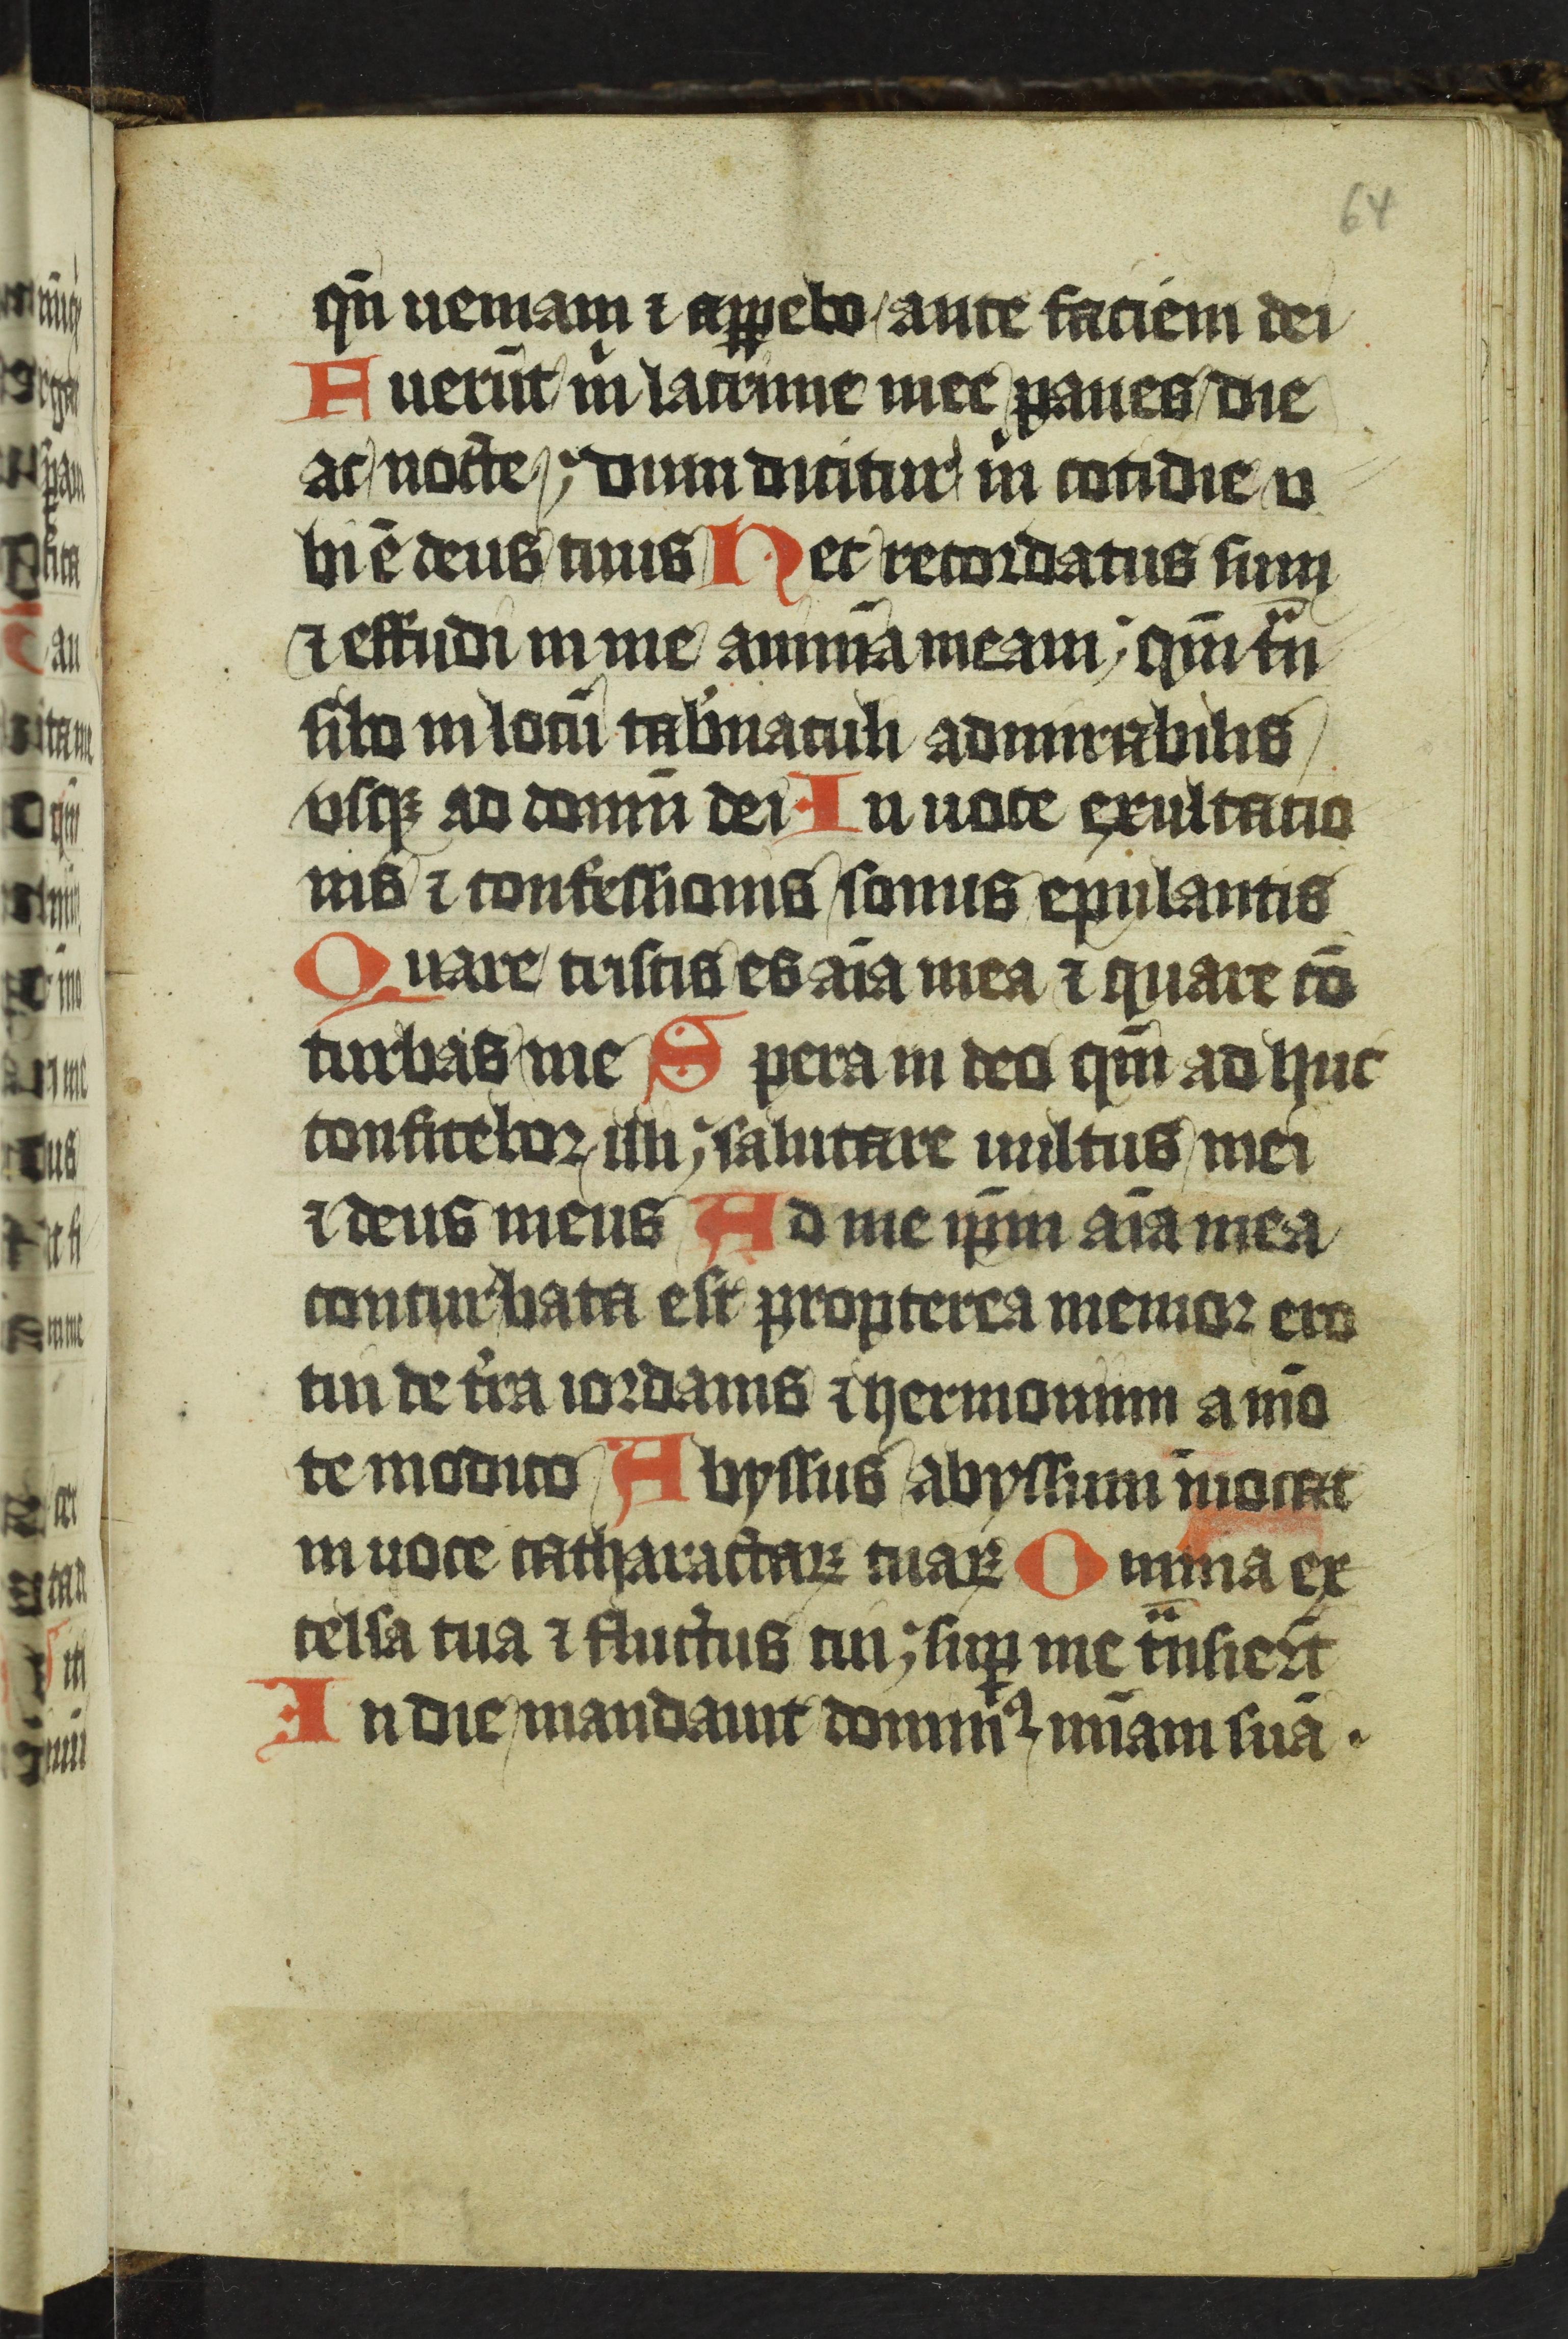 64
qn̄ ueniam ⁊ apꝑebo ante faciem dei
Fuerūt mⁱ lacrime mee panes die
ac nocte ; dum dicitur mⁱ cotidie u
bi ē deus tuus Hec recordatus sum
⁊ effudi in me animā meam ; qm̄ trā
sibo in locū tab̾naculi admirabilis
usqꝫ ad domū dei In uoce exultatio
nis ⁊ confessionis sonus epulantis
Quare tristis es aīa mea ⁊ quare cō
turbas me Spera in deo qm̄ ad huc
confitebor illi ; salutare uultus mei
⁊ deus meus Ad me ip̄m aīa mea
conturbata est propterea memor ero
tui de tr̄a iordanis ⁊ hermonium a mō
te modico Abyssus abyssum īuocat
in uoce catharactaꝝ tuaꝝ Omnia ex
celsa tua ⁊ fluctus tui ; suꝑ me trāsiert̄
In die mandauit dominꝰ mīam suā .